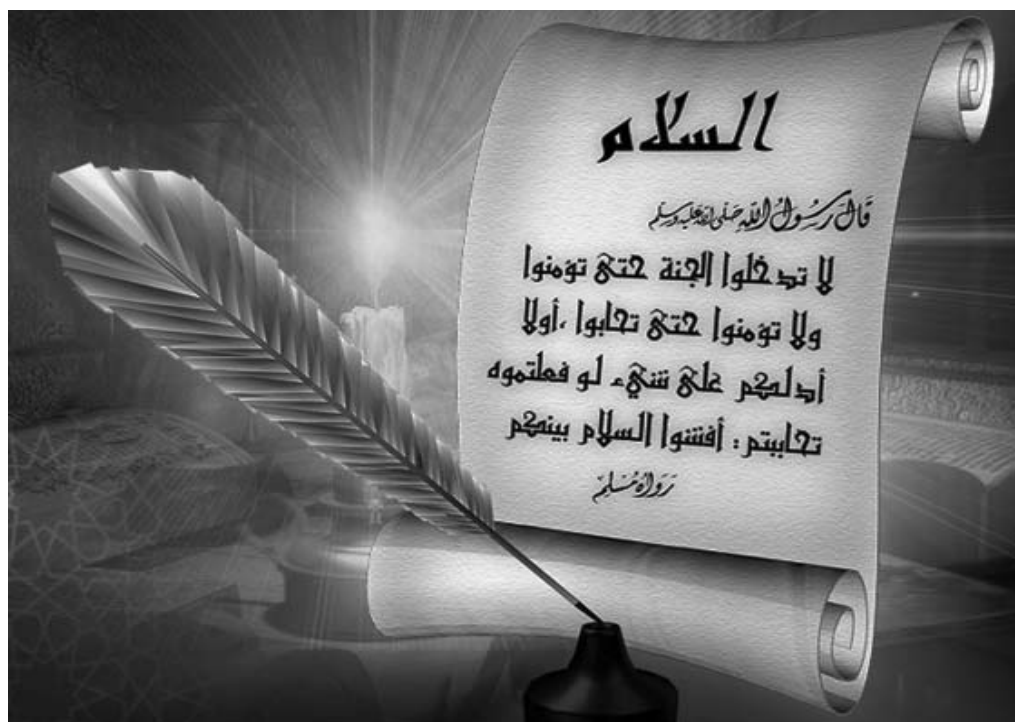 السلام
قَالَ رَسُولُ اللّهِ صَلّى اللّه عَليْه وسَلّم
لا تدخلوا الجنة حتى تؤمنوا
ولا تؤمنوا حتى تحابوا ،أولا
أدلكم على شيء لو فعلتموه
تحاببتم : أفشوا السلام بينكم
رَوَاهُ مُسْلِمٌ